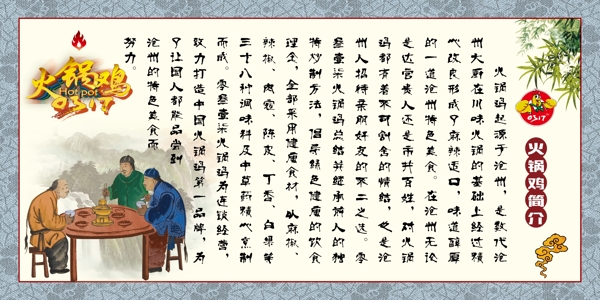 0317
火锅鸡简介
火锅鸡起源于沧州，是数代沧
州大厨在川味火锅的基础上经过精
心改良形成了麻辣适口，味道醇厚
的一道沧州特色美食。在沧州无论
是达官贵人还是市井百姓，对火锅
鸡都有着不可割舍的情结，也是沧
州人招待亲朋好友的不二之选。零
叁壹柒火锅鸡总结并继承前人的独
特炒制方法，倡导绿色健康的饮食
理念，全部采用健康食材，以麻椒、
辣椒、肉蔻、陈皮、丁香、白果等
三十八种调味料及中草药精心烹制
而成。零叁壹柒火锅鸡为连锁经营，
致力打造中国火锅鸡第一品牌，为
了让国人都能品尝到
沧州的特色美食而
努力。
火锅鸡
Hot pot
0317